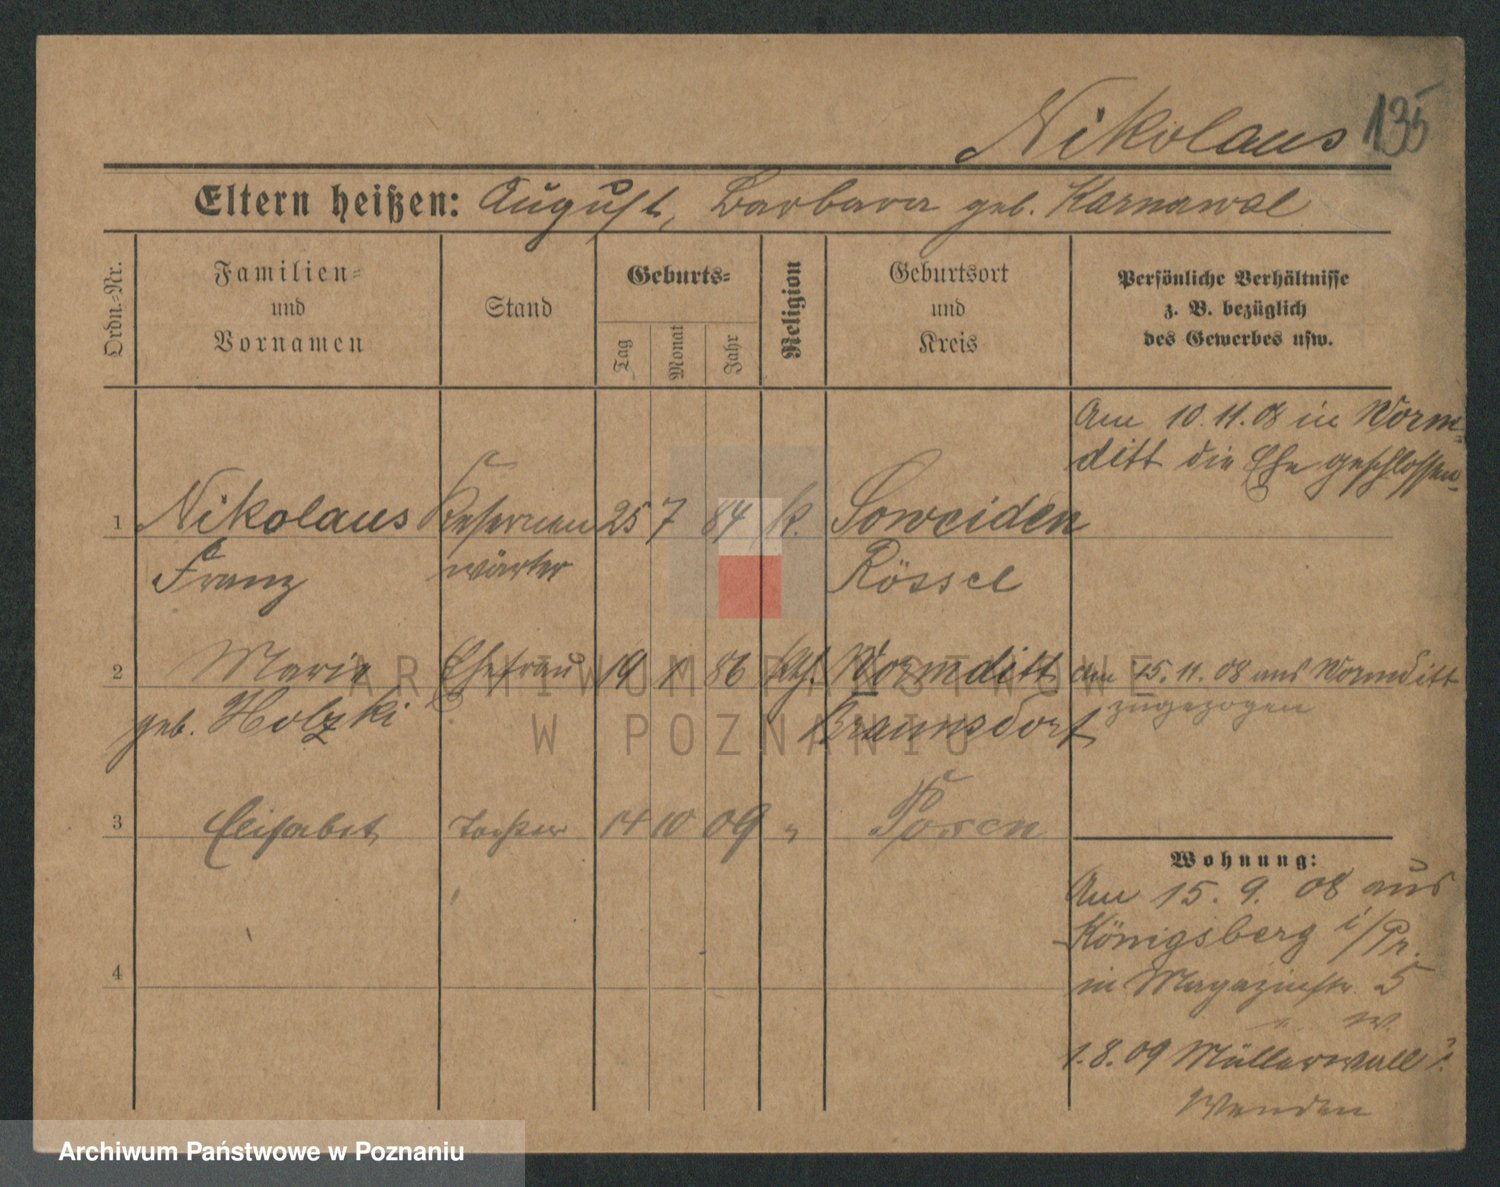 Nikolaus 135
Eltern heißen: August, Barbara geb. Karnawal
Ordn.-Nr.
Familien-
und
Vornamen
Stand
Geburts-
Tag
Monat
Jahr
Religion
Geburtsort
und
Kreis
Persönliche Verhältnisse
z. B. bezüglich
des Gewerbes usw.
Am 10.11.08 in Worm-
ditt die Ehe geschlossen.
1 Nikolaus Kasernen 25 7 84 k. Soweiden
Franz wärter Rössel
2 Marie Ehefrau 19 1 86 kth. Wormditt am 15.11.08 aus Wormditt
geb. Holzki Braunsdorf zugezogen
3 Elisabet Tochter 14 10 09 " Posen
Wohnung:
Am 15. 9. 08 aus
Königsberg i/Pr.
in Magazinstr. 5
w.
4
1.8.09 Müllerwall
ARCHIWUM PAŃSTWOWE
W POZNANIU
Archiwum Państwowe w Poznaniu